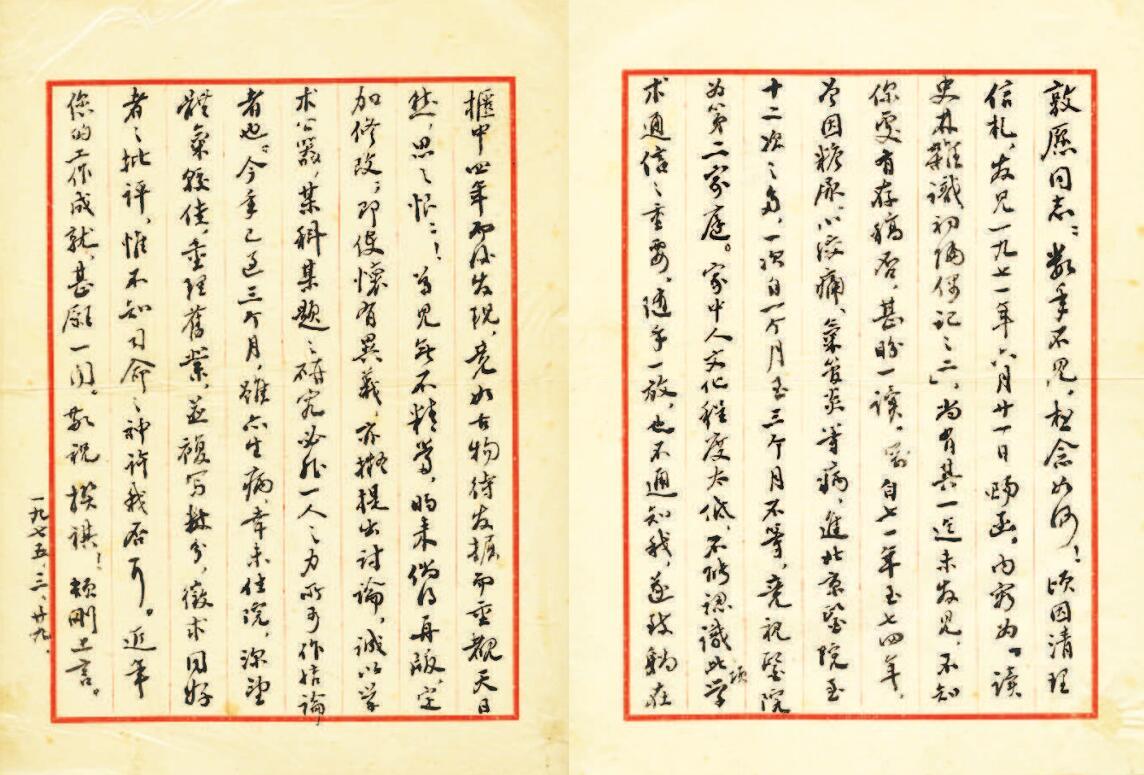 敦愿同志：数年不见，极念如何！顷因清理
信札，发见一九七一年六月廿一日赐函，内穷为“读
史林杂識初编偶记之二”，尚有其一迄未发见，不知
你处有存稿否，甚盼一读。刚自七一年至七四年，
为因糖尿、心绞痛、氣管炎等病，進北京醫院至
十二次之多，一次自一个月至三个月不等，竟视醫院
为第二家庭。家中人文化程度太低，不能認識此项学
术通信之重要，随手一放，也不通知我，遂致躺在
櫃中四年而后发现，竟如古物待发掘而重觀天日
然，思之恨恨！尊见無不精當，昀来倘得再版，定
加修改；即使懷有異義，亦擬提出討論，诚以学
术公器，某科某题之研究必非一人之力所可作结論
者也。今年已过三个月，雖亦生病，幸未住院，深望
體氣较佳，重理舊業，並複写数分，徵求同好
者之批评，惟不知司命之神许我否耳。近年
您的工作成就，甚願一闻。敬祝撰祺！颉刚上言。
一九七五，三，廿九。